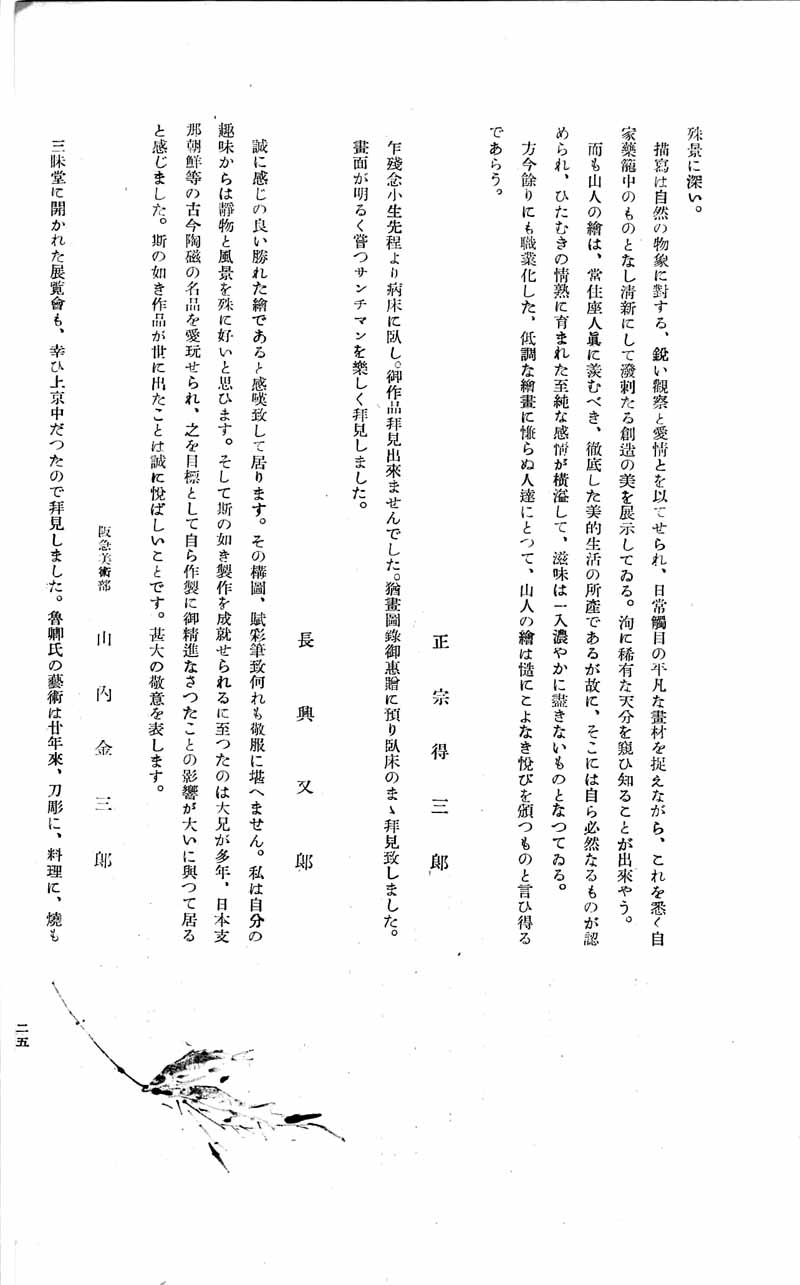 殊景に深い。
描寫は自然の物象に對する、鋭い觀察と愛情とを以てせられ、日常觸目の平凡な畫材を捉えながら、これを悉く自
家藥籠中のものとなし淸新にして潑剌たる創造の美を展示してゐる。洵に稀有な天分を窺ひ知ることが出來やう。
而も山人の繪は、常住座人眞に羨むべき、徹底した美的生活の所產であるが故に、そこには自ら必然なるものが認
められ、ひたむきの情熟に育まれた至純な感情が橫溢して、滋味は一入濃やかに盡きないものとなつてゐる。
方今餘りにも職業化した、低調な繪畫に慊らぬ人達にとつて、山人の繪は慥にこよなき悅びを頒つものと言ひ得る
であらう。
正宗得三郎
乍殘念小生先程より病床に臥し。御作品拜見出來ませんでした。猶畫圖錄御惠贈に預り臥床のまゝ拜見致しました。
畫面が明るく嘗つサンチマンを樂しく拜見しました。
長與又郎
誠に感じの良い勝れた繪であると感嘆致して居ります。その構圖、賦彩筆致何れも敬服に堪へません。私は自分の
趣味からは靜物と風景を殊に好いと思ひます。そして斯の如き製作を成就せられるに至つたのは大兄が多年、日本支
那朝鮮等の古今陶磁の名品を愛玩せられ、之を目標として自ら作製に御精進なさつたことの影響が大いに與つて居る
と感じました。斯の如き作品が世に出たことは誠に悅ばしいことです。甚大の敬意を表します。
阪急美術部 山內金三郎
三昧堂に開かれた展覽會も、幸ひ上京中だつたので拜見しました。魯卿氏の藝術は廿年來、刀彫に、料理に、燒も
二五